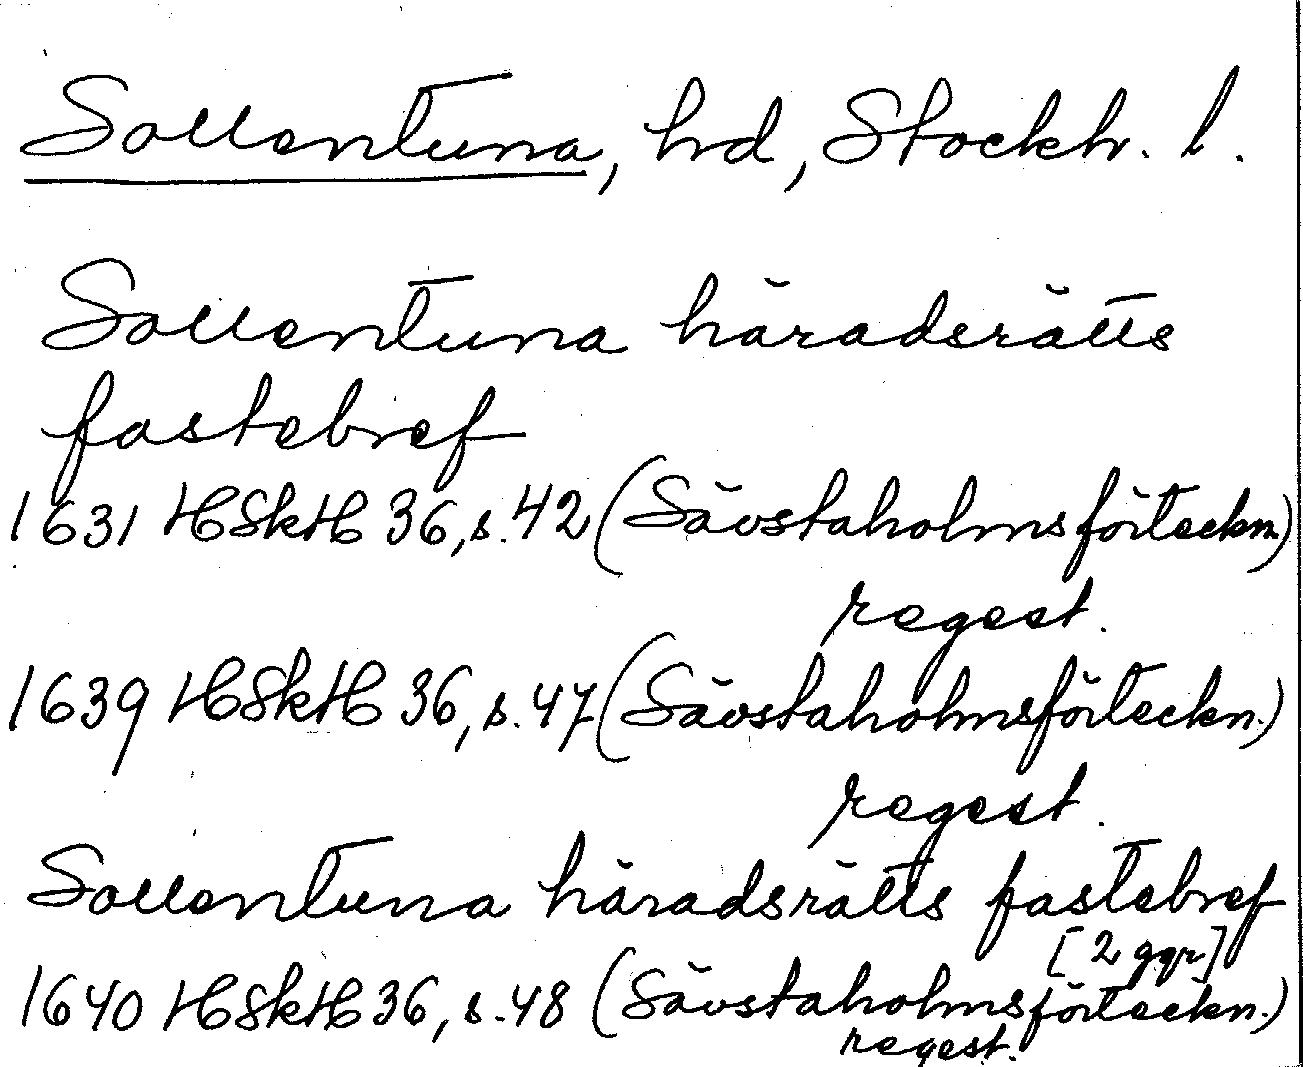 Sollentuna, hd, Stockh. l.
Sollentuna häradsrätts
fastebref
1631 HSkH 36, s. 42 (Sävstaholmsförteckn.)
regest.
1639 HSkH 36, s. 47 (Sävstaholmsförteckn.)
regest.
Sollentuna häradsrätts fastebref
[2 ggr]
1640 HSkH 36, s. 48 (Sävstaholmsförteckn.)
regest.